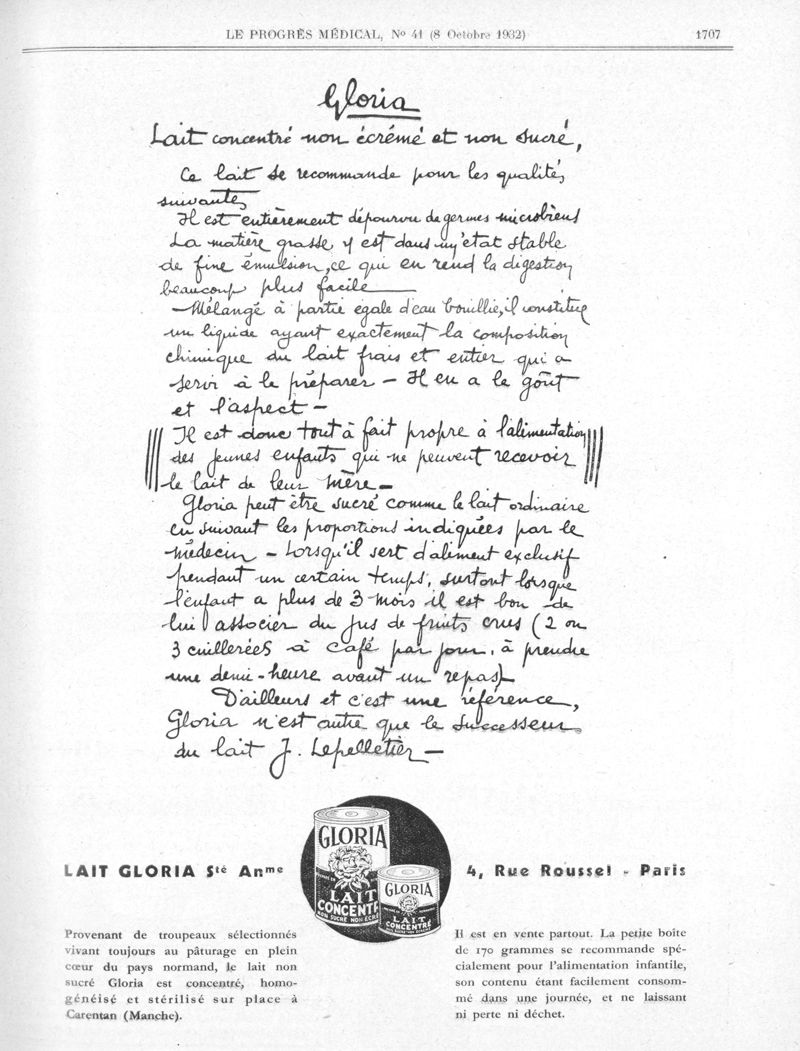 LE PROGRÈS MÉDICAL, No 41 (8 Octobre 1932)
1707
Gloria
Lait concentré non écrémé et non sucré,
Ce lait se recommande pour les qualités
suivantes
Il est entièrement dépourvu de germes microbiens
La matière grasse y est dans un état stable
de fine émulsion, ce qui en rend la digestion
beaucoup plus facile
— Mélangé à partie égale d'eau bouillie, il constitue
un liquide ayant exactement la composition
chimique du lait frais et entier qui a
servi à le préparer — Il en a le goût
et l'aspect —
Il est donc tout à fait propre à l'alimentation
des jeunes enfants qui ne peuvent recevoir
le lait de leur mère —
Gloria peut être sucré comme le lait ordinaire
en suivant les proportions indiquées par le
médecin — Lorsqu'il sert d'aliment exclusif
pendant un certain temps, surtout lorsque
l'enfant a plus de 3 mois il est bon de
lui associer du jus de fruits crus (2 ou
3 cuillerées à café par jour, à prendre
une demi-heure avant un repas)
D'ailleurs et c'est une référence,
Gloria n'est autre que le successeur
du lait J. Lepelletier —
GLORIA
LAIT
CONCENTRÉ
NON SUCRÉ NON ÉCRÉMÉ
GLORIA
LAIT
CONCENTRÉ
LAIT GLORIA Sté Anme
4, Rue Roussel - Paris
Provenant de troupeaux sélectionnés
vivant toujours au pâturage en plein
cœur du pays normand, le lait non
sucré Gloria est concentré, homo-
généisé et stérilisé sur place à
Carentan (Manche).
Il est en vente partout. La petite boîte
de 170 grammes se recommande spé-
cialement pour l'alimentation infantile,
son contenu étant facilement consom-
mé dans une journée, et ne laissant
ni perte ni déchet.